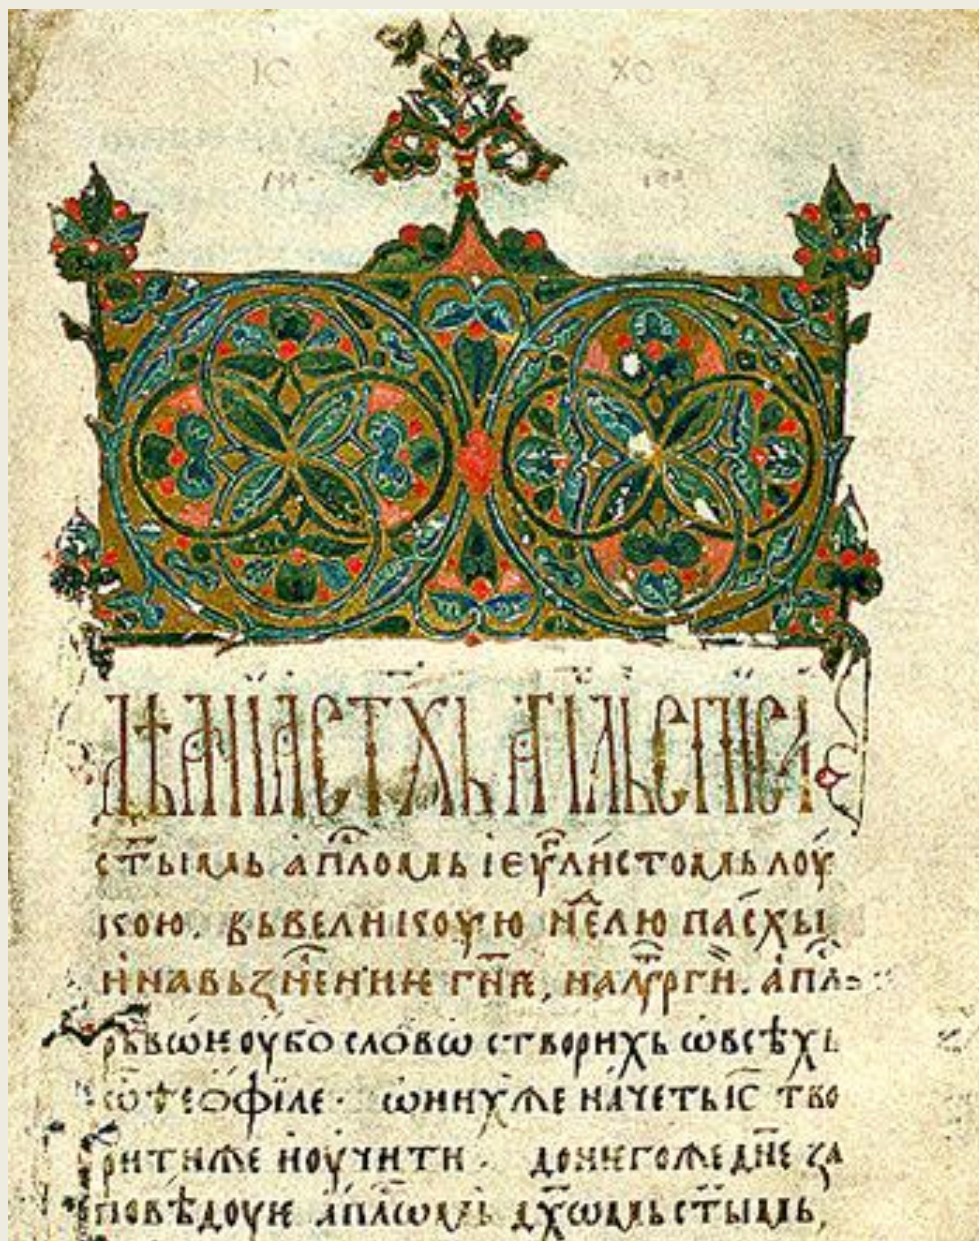 ДѢАНІА СТ҃ХЬ АП҃ЛЬ СПИСА
ст҃ымь ап҃ломь і еѵ҃листомь лоу
кою. вь великоую не҃лю пасхы
и на вьзн҃есение гн҃е, на лѵ҃рги. ап҃ль
рьвѡе оубо слово створихь ѡ всѣхь
ѡ ѳеѡфіле · ѡ нихже начеть і҃с тво
рити же и оучити · до нгоже дн҃е за
повѣдоуе ап҃лѡмь дх҃ѡмь ст҃ымь,